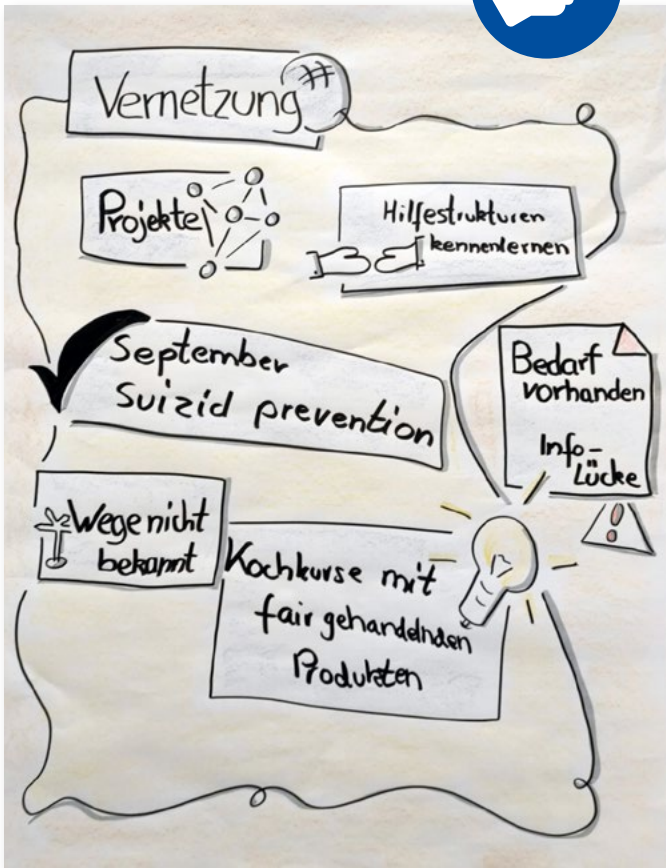 Vernetzung #
Projekte
Hilfestrukturen
kennenlernen
September
Suizid prevention
Bedarf
vorhanden
Info-
Lücke
!
Wege nicht
bekannt
Kochkurse mit
fair gehandelnden
Produkten